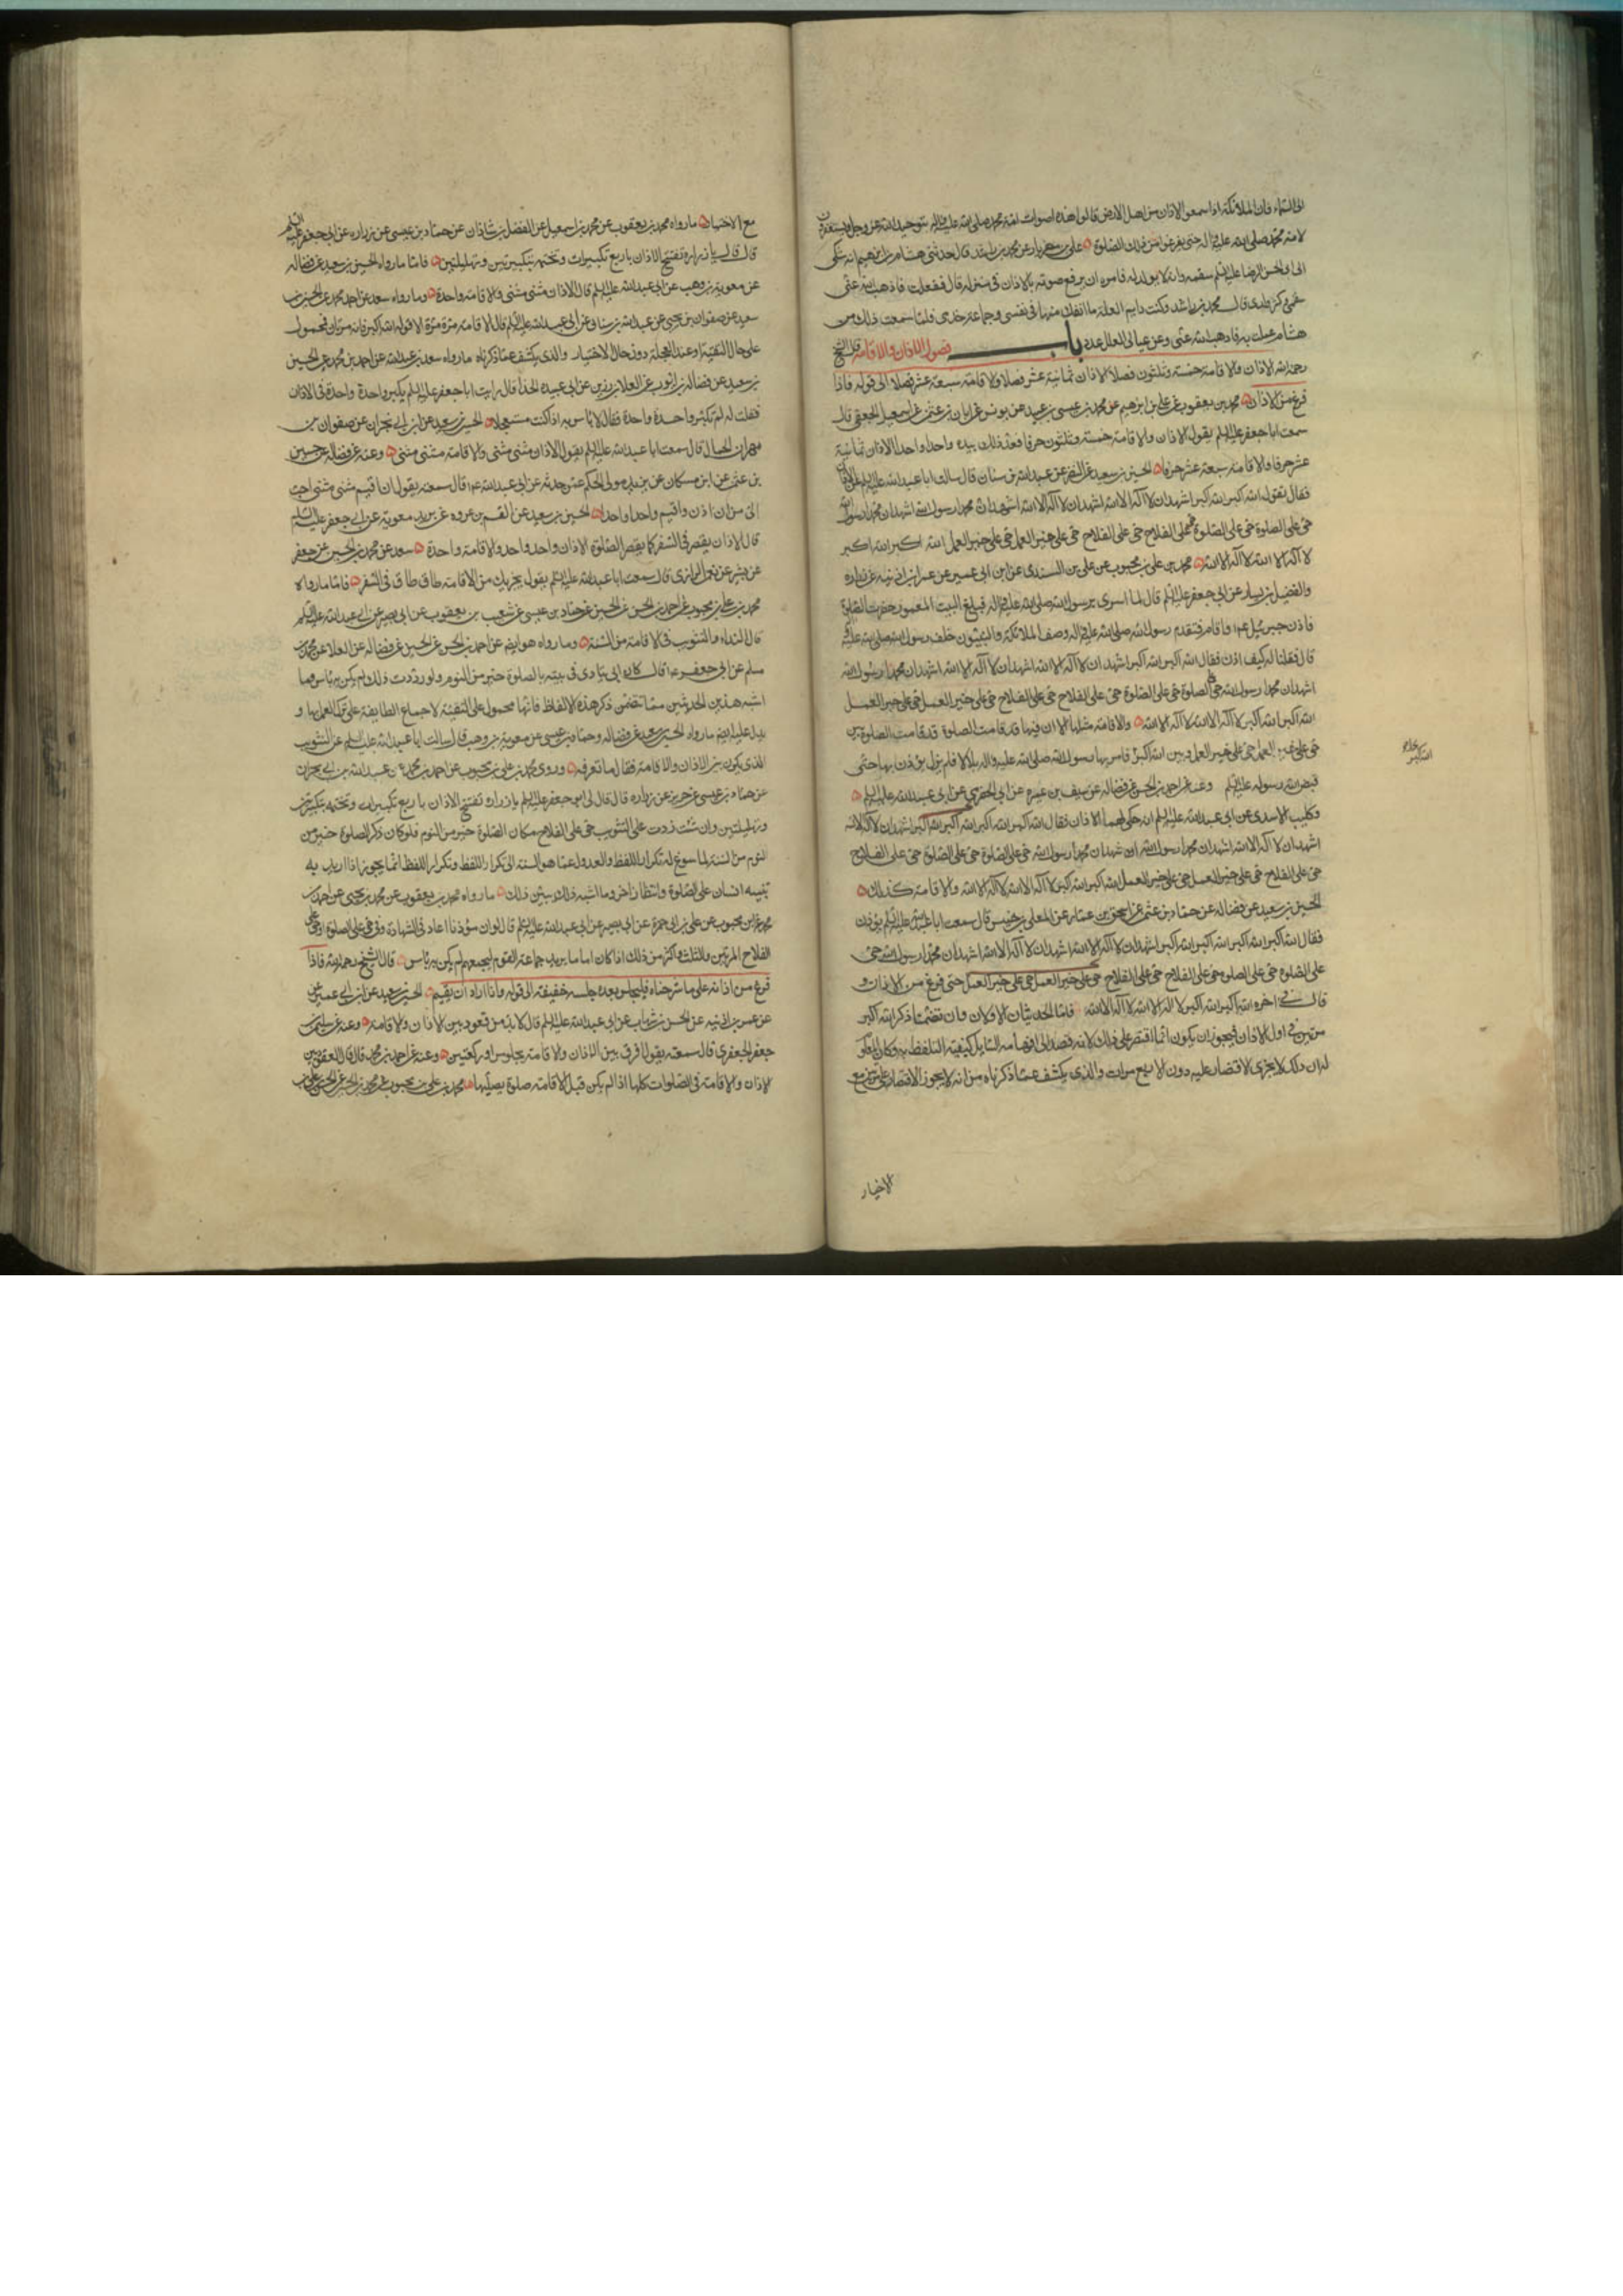 الى السماء فان الملائكة اذا سمعوا الاذان من اهل الارض قالوا هذه اصوات امة محمد صلى الله عليه واله بتوحيد الله عز وجل فيستغفرون
لامة محمد صلى الله عليه واله حتى يفرغوا من تلك الصلوة علي بن مهزيار عن محمد بن راشد قال حدثني هشام بن ابرهيم انه شكى
الى ابي الحسن الرضا عليه السلم سقمه وانه لا يولد له فامره ان يرفع صوته بالاذان في منزله قال ففعلت فاذهب الله عني
سقمي وكثر ولدي قال محمد بن راشد وكنت دايم العلة ما انفك منها في نفسي وجماعة خدمي فلما سمعت ذلك من
هشام عملت به فاذهب الله عني وعن عيالي العلل باب عدد فصول الاذان والاقامة قال الشيخ
رحمه الله الاذان والاقامة خمسة وثلثون فصلا الاذان ثمانية عشر فصلا والاقامة سبعة عشر فصلا الى قوله فاذا
فرغ من الاذان محمد بن يعقوب عن علي بن ابرهيم عن محمد بن عيسى بن عبيد عن يونس عن ابان بن عثمن عن اسمعيل الجعفي قال
سمعت ابا جعفر عليه السلم يقول الاذان والاقامة خمسة وثلثون حرفا فعد ذلك بيده واحدا واحدا الاذان ثمانية
عشر حرفا والاقامة سبعة عشر حرفا الحسين بن سعيد عن النضر عن عبدالله بن سنان قال سالت ابا عبدالله عليه السلم عن الاذان
فقال تقول الله اكبر الله اكبر اشهد ان لا اله الا الله اشهد ان لا اله الا الله اشهد ان محمدا رسول الله اشهد ان محمدا رسول الله
حي على الصلوة حي على الصلوة حي على الفلاح حي على الفلاح حي على خير العمل حي على خير العمل الله اكبر الله اكبر
لا اله الا الله لا اله الا الله محمد بن علي بن محبوب عن علي بن السندي عن ابن ابي عمير عن عمر بن اذينه عن زراره
والفضيل بن يسار عن ابي جعفر عليه السلم قال لما اسرى برسول الله صلى الله عليه واله فبلغ البيت المعمور حضرت الصلوة
فاذن جبرئيل عم واقام فتقدم رسول الله صلى الله عليه واله وصف الملائكة والنبيون خلف رسول الله صلى الله عليه
قال فقلنا له كيف اذن فقال الله اكبر الله اكبر اشهد ان لا اله الا الله اشهد ان لا اله الا الله اشهد ان محمدا رسول الله
اشهد ان محمدا رسول الله حي على الصلوة حي على الصلوة حي على الفلاح حي على الفلاح حي على خير العمل حي على خير العمل
الله اكبر الله اكبر لا اله الا الله لا اله الا الله والاقامة مثلها الا ان فيها قد قامت الصلوة قد قامت الصلوة بين
حي على خير العمل حي على خير العمل وبين الله اكبر فامر بها رسول الله صلى الله عليه واله بلالا فلم يزل يؤذن بها حتى
قبض الله رسوله عليه السلم وعنه عن احمد بن الحسن عن فضاله عن سيف بن عميره عن ابي بكر الحضرمي عن ابي عبدالله عليه السلم
وكليب الاسدي عن ابي عبدالله عليه السلم انه حكى لهما الاذان فقال الله اكبر الله اكبر الله اكبر الله اكبر اشهد ان لا اله الا الله
اشهد ان لا اله الا الله اشهد ان محمدا رسول الله اشهد ان محمدا رسول الله حي على الصلوة حي على الصلوة حي على الفلاح
حي على الفلاح حي على خير العمل حي على خير العمل الله اكبر الله اكبر لا اله الا الله لا اله الا الله والاقامة كذلك
الحسين بن سعيد عن فضاله عن حماد بن عثمن عن اسحق بن عمار عن المعلى بن خنيس قال سمعت ابا عبدالله عليه السلم يؤذن
فقال الله اكبر الله اكبر الله اكبر الله اكبر اشهد ان لا اله الا الله اشهد ان لا اله الا الله اشهد ان محمدا رسول الله حي
على الصلوة حي على الصلوة حي على الفلاح حي على الفلاح حي على خير العمل حي على خير العمل حتى فرغ من الاذان و
قال في اخره الله اكبر الله اكبر لا اله الا الله لا اله الا الله فاما الحديثان الاولان وان تضمنا ذكر الله اكبر
مرتين في اول الاذان فيجوز ان يكون انما اقتصر على ذلك لانه قصد الى افهامه السايل كيفية التلفظ به وكان المعلوم
له ان ذلك لا يجزي الاقتصار عليه دون الاربع مرات والذي يكشف عما ذكرناه من انه لا يجوز الاقتصار على مرتين مع
الاختيار
الله اكبر
مع الاختيار ما رواه محمد بن يعقوب عن محمد بن اسمعيل عن الفضل بن شاذان عن حماد بن عيسى عن حريز عن زراره عن ابي جعفر عليه السلم
قال قال يا زراره تفتتح الاذان باربع تكبيرات وتختمه بتكبيرتين وتهليلتين فاما ما رواه الحسين بن سعيد عن فضاله
عن معويه بن وهب عن ابي عبدالله عليه السلم قال الاذان مثنى مثنى والاقامة واحدة وما رواه سعد عن احمد بن محمد عن الحسين بن
سعيد عن صفوان بن يحيى عن عبدالله بن سنان عن ابي عبدالله عليه السلم قال الاقامة مرة مرة الا قوله الله اكبر فانه مرتان فمحمول
على حال التقية او عند العجلة دون حال الاختيار والذي يكشف عما ذكرناه ما رواه سعد بن عبدالله عن احمد بن محمد عن الحسين
بن سعيد عن فضاله بن ايوب عن العلاء بن رزين عن ابي عبيده الحذا قال رايت ابا جعفر عليه السلم يكبر واحدة واحدة في الاذان
فقلت له لم تكبر واحدة واحدة فقال لا باس به اذا كنت مستعجلا الحسين بن سعيد عن ابن ابي نجران عن صفوان بن
مهران الجمال قال سمعت ابا عبدالله عليه السلم يقول الاذان مثنى مثنى والاقامة مثنى مثنى وعنه عن فضاله عن حسين
بن عثمن عن ابن مسكان عن بريد مولى الحكم عمن حدثه عن ابي عبدالله عم قال سمعته يقول لان اقيم مثنى مثنى احب
الي من ان اذن واقيم واحدا واحدا الحسين بن سعيد عن القسم بن عروه عن بريد بن معويه عن ابي جعفر عليه السلم
قال الاذان يقصر في السفر كما يقصر الصلوة الاذان واحد واحد والاقامة واحدة سعد عن محمد بن الحسين عن جعفر
بن بشير عن نعمان الرازي قال سمعت ابا عبدالله عليه السلم يقول يجزيك من الاقامة طاق طاق في السفر فاما ما رواه
محمد بن علي بن محبوب عن احمد بن الحسن عن الحسين عن حماد بن عيسى عن شعيب بن يعقوب عن ابي بصير عن ابي عبدالله عليه السلم
قال النداء والتثويب في الاقامة من السنة وما رواه هو ايضا عن احمد بن الحسن عن الحسين عن فضاله عن العلا عن محمد بن
مسلم عن ابي جعفر عم قال كان ابي ينادي في بيته بالصلوة خير من النوم ولو رددت ذلك لم يكن به باس وما
اشبه هذين الحديثين مما تتضمن ذكر هذه الالفاظ فانها محمولة على التقية لاجماع الطايفة على ترك العمل بها و
يدل عليه ايضا ما رواه الحسين بن سعيد عن فضاله وحماد بن عيسى عن معويه بن وهب قال سالت ابا عبدالله عليه السلم عن التثويب
الذي يكون بين الاذان والاقامة فقال ما نعرفه وروى محمد بن علي بن محبوب عن احمد بن محمد عن عبدالله بن ابي نجران
عن حماد بن عيسى عن حريز عن زراره قال قال لي ابو جعفر عليه السلم يا زراره تفتتح الاذان باربع تكبيرات وتختمه بتكبيرتين
وتهليلتين وان شئت زدت على التثويب حي على الفلاح مكان الصلوة خير من النوم فلو كان ذكر الصلوة خير من
النوم من السنة لما سوغ له تكرار اللفظ والعدول عما هو السنة الى تكرار اللفظ وتكرار اللفظ انما يجوز اذا اريد به
تنبيه انسان على الصلوة وانتظار اخر وما اشبه ذلك يبين ذلك ما رواه محمد بن يعقوب عن محمد بن يحيى عن احمد بن
محمد عن ابن محبوب عن علي بن ابي حمزة عن ابي بصير عن ابي عبدالله عليه السلم قال لو ان مؤذنا اعاد في الشهادة وفي حي على الصلوة او حي على
الفلاح المرتين والثلث واكثر من ذلك اذا كان اماما يريد جماعة القوم ليجمعهم لم يكن به باس قال الشيخ رحمه الله فاذا
فرغ من اذانه على ما شرحناه فليجلس بعده جلسة خفيفة الى قوله واذا اراد ان يقيم الحسين بن سعيد عن ابن ابي عمير عن
عن عمر بن اذينه عن الحسن بن شهاب عن ابي عبدالله عليه السلم قال لا بد من قعود بين الاذان والاقامة وعنه عن سليمان بن
جعفر الجعفري قال سمعته يقول افرق بين الاذان والاقامة بجلوس او بركعتين وعنه عن احمد بن محمد قال قال القعود بين
الاذان والاقامة في الصلوات كلها اذا لم يكن قبل الاقامة صلوة يصليها محمد بن علي بن محبوب عن محمد بن الحسين عن الحسن بن علي بن